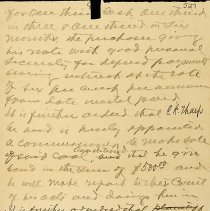 327
for one third cash one third
in three & one third in six
months the purchaser giving
his note with good personal
security for deferred payments
bearing interest at the rate
of six per cent per annum
from date until paid
It is further ordered that C. R. Thorp
be and is hereby appointed
a commissioner to make sale
of said land, and that he give
bond in the sum of $500.00 and
he will make report to this Court
of his acts and doings
It is further ordered that